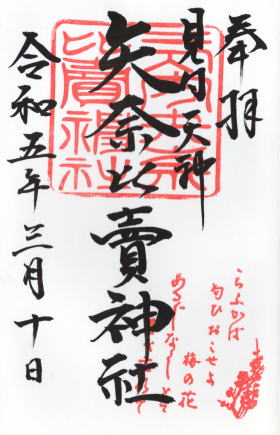 奉拝
見付天神
矢奈比賣神社
令和五年三月十日
こちふかば
匂ひおこせよ
梅の花
あるじなしとて